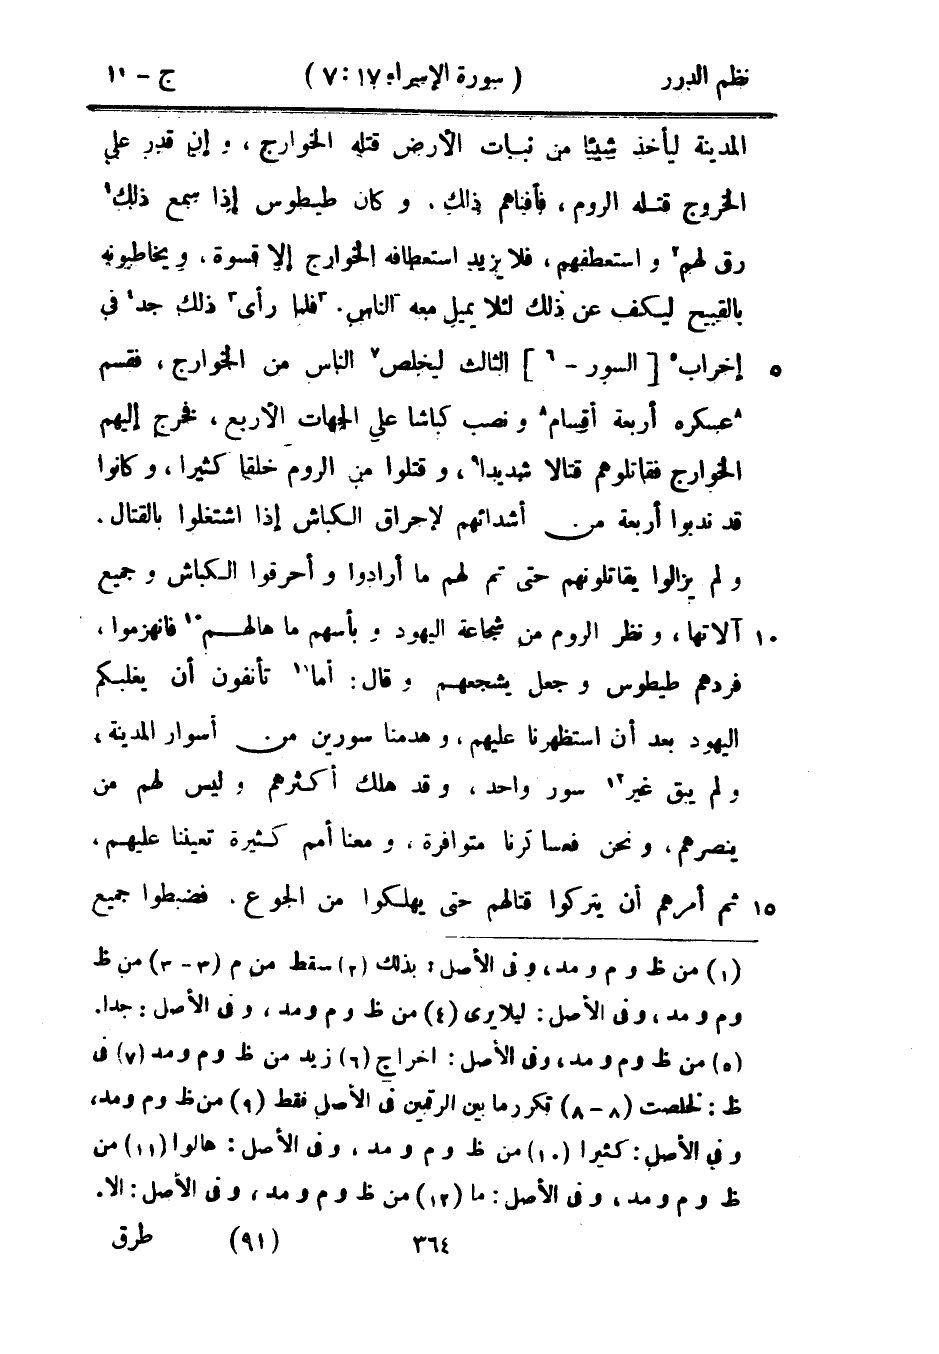 نظم الدرر ( سورة الإسراء ١٧ : ٧ ) ج - ١١
المدينة ليأخذ شيئا من نبات الأرض قتله الخوارج ، و إن قدر على
الخروج قتله الروم ، فأفناهم ذلك . و كان طيطوس إذا سمع ذلك١
رق لهم٢ و استعطفهم ، فلا يزيد استعطافه الخوارج إلا قسوة ، و يخاطبونه
بالقبيح ليكف عن ذلك لئلا يميل معه الناس . ٣فلما رأى٣ ذلك جد٤ فى
٥ إخراب٥ [ السور - ٦ ] الثالث ليخلص٧ الناس من الخوارج ، فقسم
٨عسكره أربعة أقسام٨ و نصب كباشا على الجهات الأربع ، فخرج إليهم
الخوارج فقاتلوهم قتالا شديدا٩ ، و قتلوا من الروم خلقا كثيرا ، و كانوا
قد ندبوا أربعة من أشدائهم لإحراق الكباش إذا اشتغلوا بالقتال .
و لم يزالوا يقاتلونهم حتى تم لهم ما أرادوا و أحرقوا الكباش و جميع
١٠ آلاتها ، و نظر الروم من شجاعة اليهود و بأسهم ما هالهم١٠ فانهزموا ،
فردهم طيطوس و جعل يشجعهم و قال : أما١١ تأنفون أن يغلبكم
اليهود بعد أن استظهرنا عليهم ، و هدمنا سورين من أسوار المدينة ،
و لم يبق غير١٢ سور واحد ، و قد هلك أكثرهم و ليس لهم من
ينصرهم ، و نحن فعساكرنا متوافرة ، و معنا أمم كثيرة تعيننا عليهم ،
١٥ ثم أمرهم أن يتركوا قتالهم حتى يهلكوا من الجوع . فضبطوا جميع
(١) من ظ و م و مد ، و فى الأصل : بذلك (٢) سقط من م (٣ - ٣) من ظ
و م و مد ، و فى الأصل : ليلا يرى (٤) من ظ و م و مد ، و فى الأصل : جدا .
(٥) من ظ و م و مد ، و فى الأصل : اخراج (٦) زيد من ظ و م و مد (٧) فى
ظ : لخلصت (٨ - ٨) تكرر ما بين الرقمين فى الأصل فقط (٩) من ظ و م و مد ،
و فى الأصل : كثيرا (١٠) من ظ و م و مد ، و فى الأصل : هالوا (١١) من
ظ و م و مد ، و فى الأصل : ما (١٢) من ظ و م و مد ، و فى الأصل : الا .
٣٦٤ (٩١) طرق